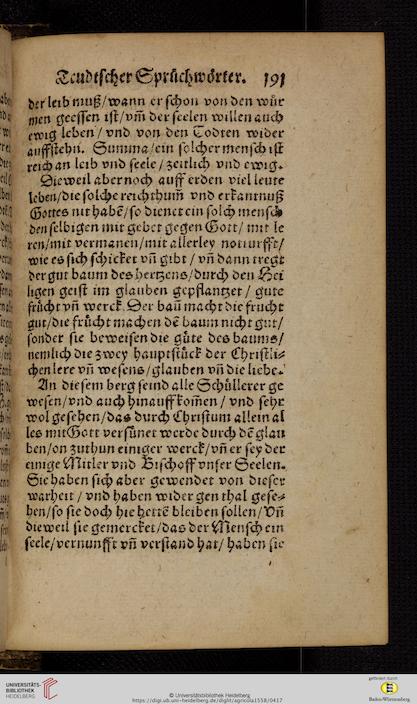 Teudtscher Sprüchwörter. 191
der leib muß/wann er schon von den wür
men geessen ist/vm̄ der seelen willen auch
ewig leben/vnd von den Todten wider
auffstehn. Summa/ein solcher mensch ist
reich an leib vnd seele/zeitlich vnd ewig.
Dieweil aber noch auff erden viel leute
leben/die solche reichthum̄ vnd erkantnuß
Gottes nit habē/so dienet ein solch mensch
den selbigen mit gebet gegen Gott/mit le
ren/mit vermanen/mit allerley notturfft/
wie es sich schicket vn̄ gibt/vn̄ dann tregt
der gut baum des hertzens/durch den Hei
ligen geist im glauben gepflantzet/gute
frücht vn̄ werck. Der bau̅ macht die frucht
gut/die frücht machen dē baum nicht gut/
sonder sie beweisen die güte des baums/
nemlich die zwey hauptstück der Christli-
chen lere vn̄ wesens/glauben vn̄ die liebe.
An diesem berg seind alle Schüllerer ge
wesen/vnd auch hinauff kom̄en/vnd sehr
wol gesehen/das durch Christum allein al
les mit Gott versünet werde durch dē glau
ben/on zuthun einiger werck/vn̄ er sey der
einige Mitler vnd Bischoff vnser Seelen.
Sie haben sich aber gewendet von dieser
warheit/vnd haben wider gen thal gese-
hen/so sie doch hie hettē bleiben sollen/Vn̄
dieweil sie gemercket/das der Mensch ein
seele/vernunfft vn̄ verstand hat/haben sie
UNIVERSITÄTS-
BIBLIOTHEK
HEIDELBERG
© Universitätsbibliothek Heidelberg
https://digi.ub.uni-heidelberg.de/diglit/agricola1558/0417
gefördert durch
Baden-Württemberg